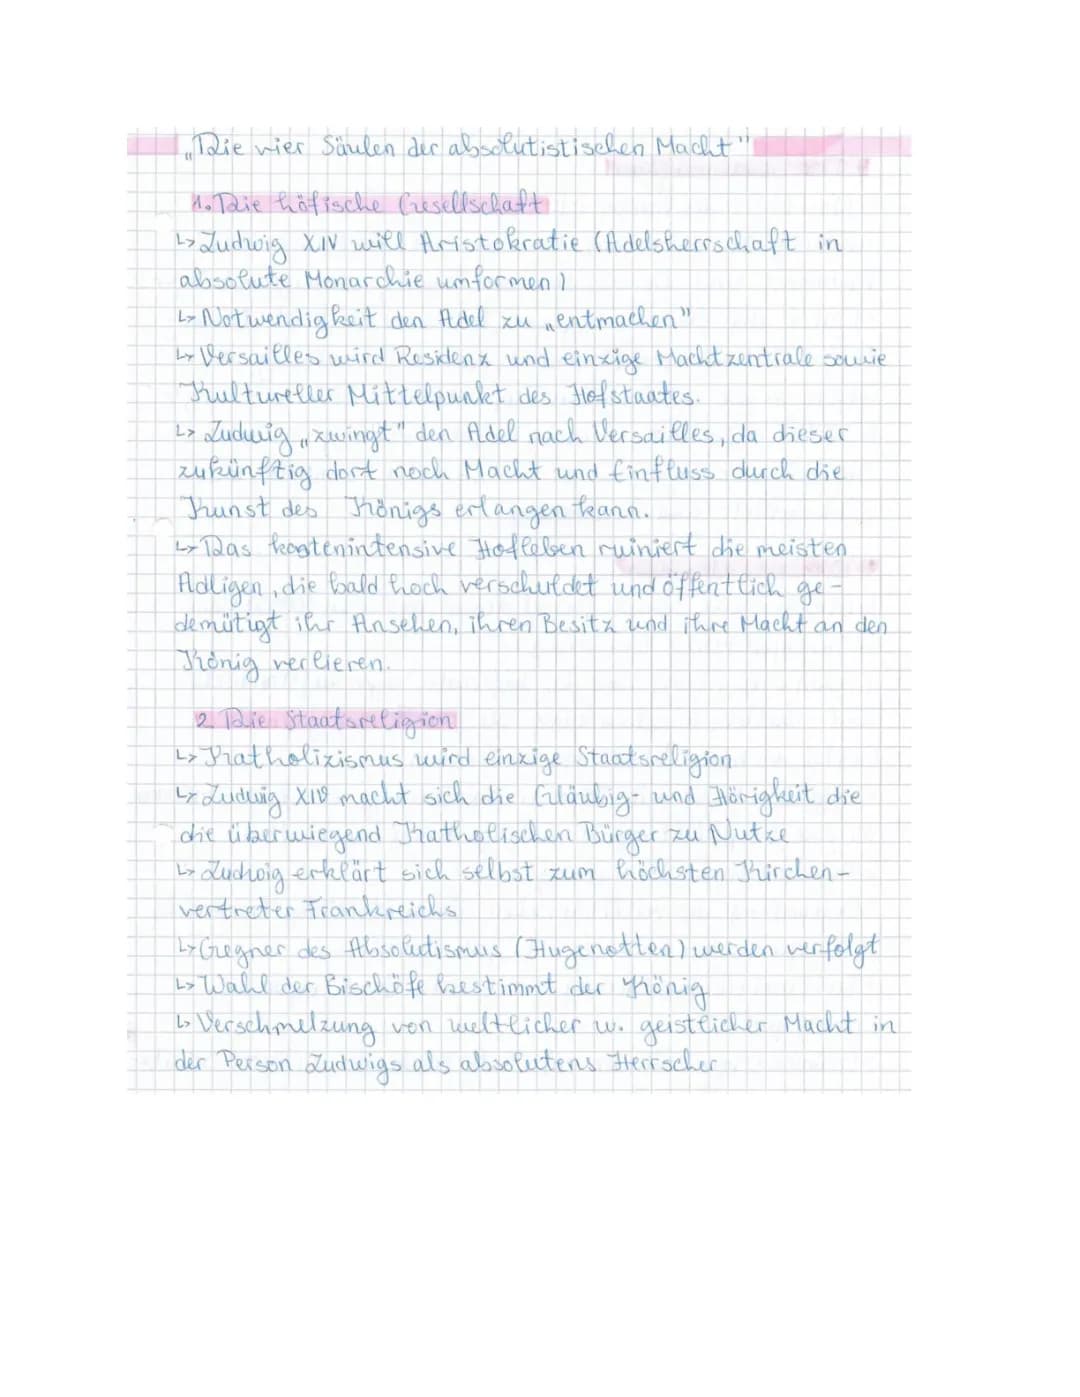 „Die vier Säulen der absolutistischen Macht"
1. Die höfische Gesellschaft
↳ Ludwig XIV will Aristokratie (Adelsherrschaft in
absolute Monarchie umformen)
↳ Notwendigkeit den Adel zu „entmachen"
↳ Versailles wird Residenz und einzige Machtzentrale sowie
Kultureller Mittelpunkt des Hofstaates.
↳ Ludwig „zwingt" den Adel nach Versailles, da dieser
zukünftig dort noch Macht und Einfluss durch die
Kunst des Königs erlangen kann.
↳ Das kostenintensive Hofleben ruiniert die meisten
Adligen, die bald hoch verschuldet und öffentlich ge-
demütigt ihr Ansehen, ihren Besitz und ihre Macht an den
König verlieren.
2. Die Staatsreligion
↳ Katholizismus wird einzige Staatsreligion
↳ Ludwig XIV macht sich die Gläubig- und Hörigkeit die
die überwiegend Katholischen Bürger zu Nutze
↳ Ludwig erklärt sich selbst zum höchsten Kirchen-
vertreter Frankreichs
↳ Gegner des Absolutismus (Hugenotten) werden verfolgt
↳ Wahl der Bischöfe bestimmt der König
↳ Verschmelzung von weltlicher u. geistlicher Macht in
der Person Ludwigs als absolutens Herrscher